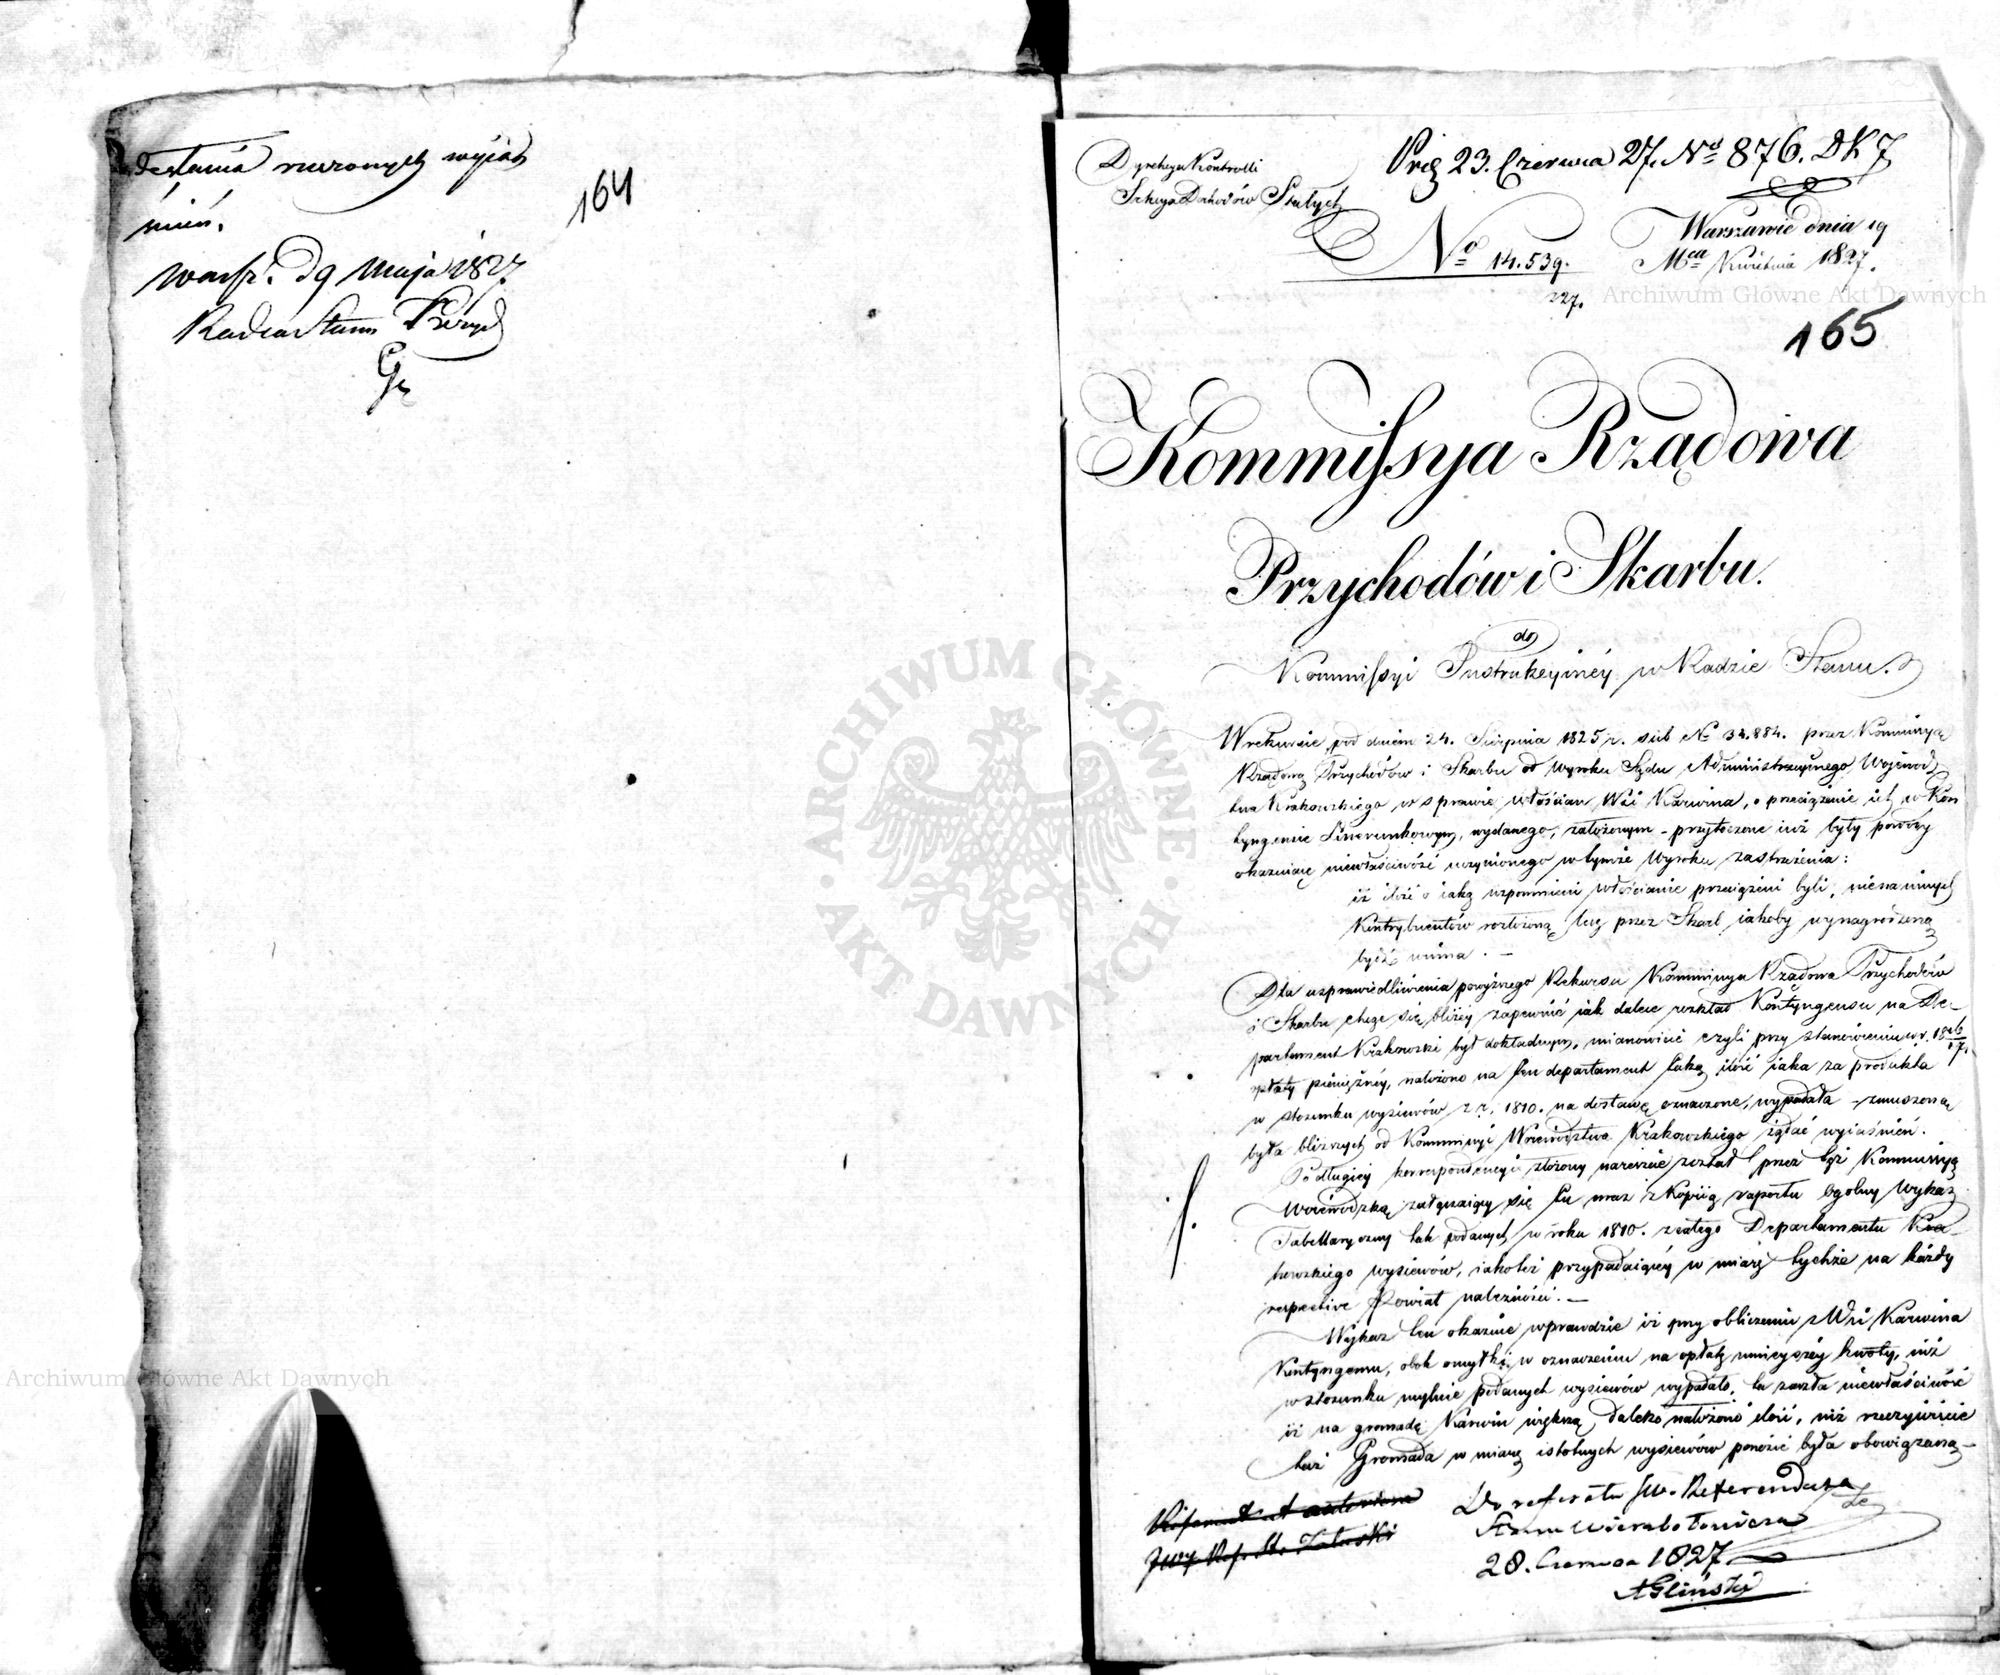 desłania rzeczonych wyiaś
śnień.
Warsz. d 9 Maja 1827
Radca Stanu
164
Dyrekcya Kontrolli
Sekcya Dochodów Stałych
Prez 23. Czerwca 27. No 876. DK 7
No 14.539.
227.
Warszawie dnia 19
Mca Kwietnia 1827.
165
Kommissya Rządowa
Przychodów i Skarbu.
do
Kommissyi Instrukcyiney w Radzie Stanu.
W rekursie pod dniem 24. Sierpnia 1825 r. sub No 34.884. przez Kommissyą
Rządową Przychodów i Skarbu od Wyroku Sądu Administracyinego Wojewodz
twa Krakowskiego w sprawie włościan Wsi Karwina, o przeciążenie ich w Kon
tyngensie Liwerunkowym, wydanego, założonym - przytoczone iuż były powody
okazuiące niewłaściwość uczynionego w tymże Wyroku zastrzeżenia:
iż ilość o iaką wspomnieni włościanie przeciążeni byli, nie na innych
Kontrybuentów rozłożoną, lecz przez Skarb iakoby wynagrodzoną
bydź winna. —
Dla usprawiedliwienia powyższego Rekursu Kommissya Rządowa Przychodów
i Skarbu chcąc się bliżey zapewnić jak dalece rozkład Kontyngensu na De-
partament Krakowski był dokładnym, mianowicie czyli przy stanowieniu w r. 1816/17.
opłaty pieniężney, nałożono na ten departament taką ilość iaka za produkta
w stosunku wysiewów z r. 1810. na dostawę oznaczone, wypadała - zmuszoną
była bliższych od Kommissyi Woiewództwa Krakowskiego żądać wyiaśnień.
Po długiey korrespondencyi złożony nareszcie został przez tęż Kommissyą
Woiewódzką załączaiący się tu wraz z Kopiią raportu ogólny Wykaz
Tabellaryczny tak podanych w roku 1810. z całego Departamentu Kra-
kowskiego wysiewów, iakoteż przypadaiącey w miarę tychże na każdy
respective Powiat należności. —
Wykaz ten okazuie wprawdzie iż przy obliczeniu z Wsi Karwina
Kontyngensu, obok omyłki w oznaczeniu na opłatę mnieyszey kwoty, niż
w stosunku mylnie podanych wysiewów wypadało, ta zaszła niewłaściwość
iż na gromadę Karwin większą daleko nałożono ilość, niż rzeczywiście
taż Gromada w miarę istotnych wysiewów ponosić była obowiązaną -
JWy Ref. St. Załuski
Do referatu JW. Referendarza
Stanu Wierzbołowicza
28. Czerwca 1827
AGliński
Archiwum Główne Akt Dawnych
Archiwum Główne Akt Dawnych
ARCHIWUM GŁÓWNE AKT DAWNYCH